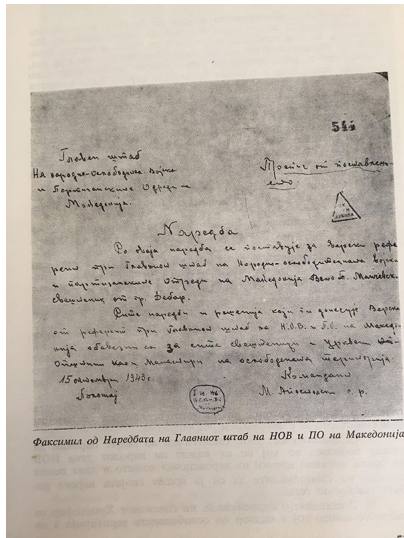 544
Главен штаб
На народно-Ослободителна војска
и Партизанските Одреди на
Македонија.
Препис от поставлен-
ето
Наредба
Со оваја наредба се поставује за Верски рефе-
рент при Главниот штаб на Народно-ослободителната војска
и партизанските Отреди на Македонија Вељо Т. Манчевск.
свешченик от гр. Дебар.
Сите наредби и решенија који ќе донесује Верски-
от референт при Главниот штаб на Н.О.В. и П.О. на Македо-
нија обавезни се за сите свешченици и црквени
Општини како и Манастири на ослободената територија.
15 октомври 1943 г.
Командант
М. Апостолски с.р.
Факсимил од Наредбата на Главниот штаб на НОВ и ПО на Македонија